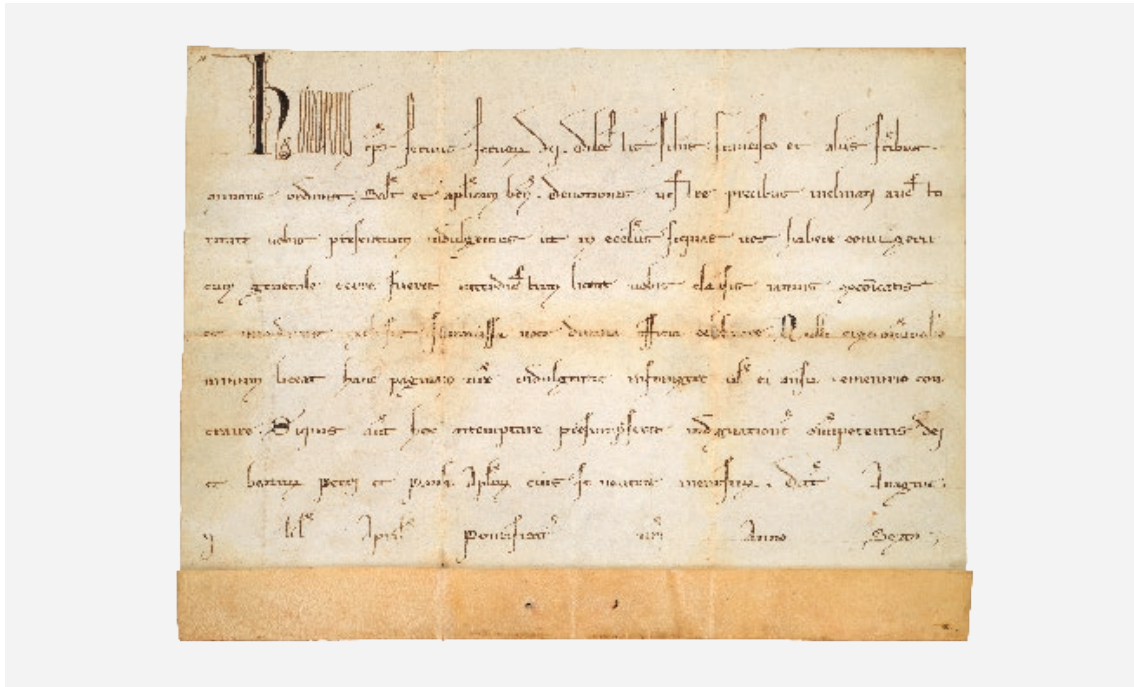 honorius eps servus servorum dei. dilectis filiis francisco et aliis fratribus
minoris ordinis. Salt et aplicam ben. devotionis vestre precibus inclinati aucto
ritate vobis presentium indulgemus ut in ecclis siquas vos habere contigerit
cum generale terre fuerit interdictum liceat vobis clausis ianuis excoicatis
et interdictis exclusis submissa voce divina officia celebrare. Nulli ergo omnino ho
minum liceat hanc paginam nre indulgentie infringere vel ei ausu temerario con
traire. Siquis aut hoc attemptare presumpserit indignationem omnipotentis dei
et beatorum petri et pauli Aplorum eius se noverit incursurum. Dat Anagnie
kl April Pontificat nri Anno Sexto.